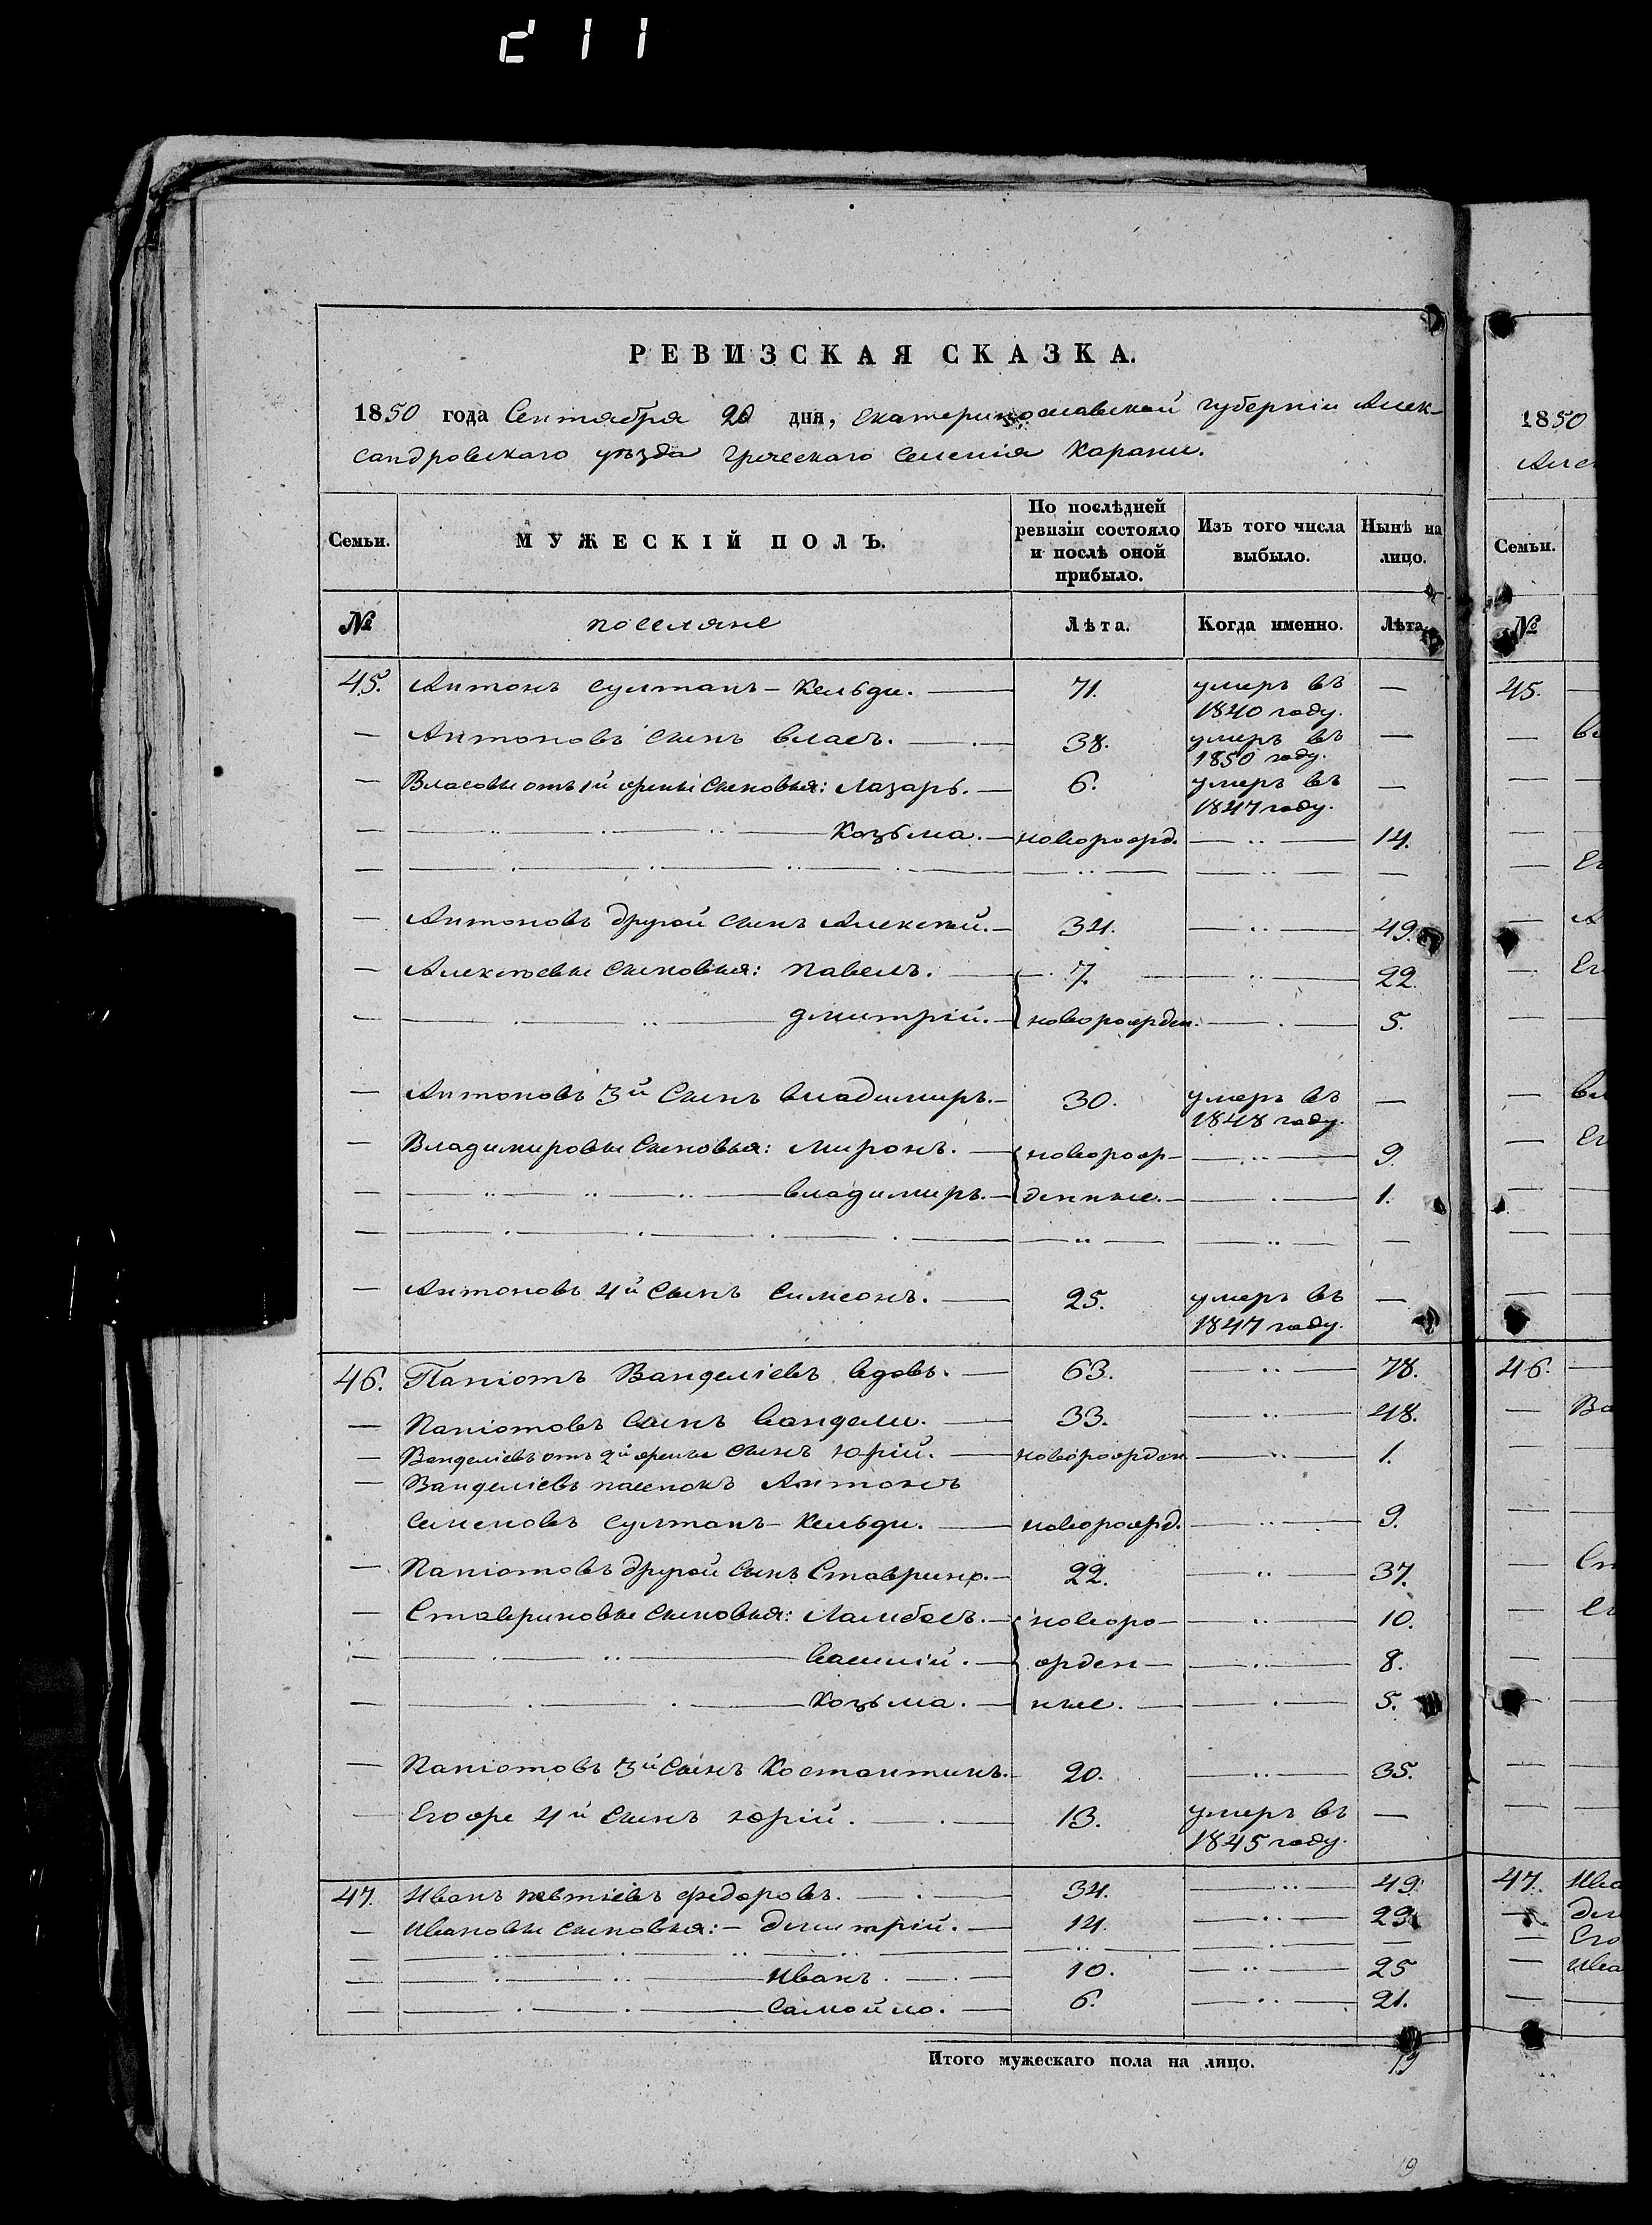 211
РЕВИЗСКАЯ СКАЗКА.
1850 года Сентября 20 дня, Екатеринославской губерніи Алек-
сандровскаго уѣзда Греческаго селенія Карани.
Семьи. МУЖЕСКІЙ ПОЛЪ. По послѣдней ревизіи состояло и послѣ оной прибыло. Изъ того числа выбыло. Нынѣ на лицо.
№ поселяне Лѣта. Когда именно. Лѣта.
45. Антонъ Султанъ-Кельди. 71. умеръ въ 1840 году. —
— Антоновъ сынъ Власъ. 38. умеръ въ 1850 году. —
— Власовы отъ 1й жены сыновья: Лазарь. 6. умеръ въ 1847 году. —
— Козьма. новорожд. — 14.
— Антоновъ другой сынъ Алексѣй. 34. — 49.
— Алексѣевы сыновья: Павелъ. 7. — 22.
— Дмитрій. новорожден. — 5.
— Антоновъ 3й сынъ Владимиръ. 30. умеръ въ 1848 году. —
— Владимировы сыновья: Миронъ. новорож- — 9.
— Владимиръ. денные. — 1.
— Антоновъ 4й сынъ Симеонъ. 25. умеръ въ 1847 году. —
46. Папіотъ Ванделіевъ вдовъ. 63. — 78.
— Папіотовъ сынъ Вандели. 33. — 48.
— Ванделіевъ отъ 2й жены сынъ Юрій. новорожден. — 1.
— Ванделіевъ пасенокъ Антонъ
Семеновъ Султанъ-Кельди. новорожд. — 9.
— Папіотовъ другой сынъ Ставрино. 22. — 37.
— Ставриновы сыновья: Ламбосъ. новоро- — 10.
— Василій. жден- — 8.
— Козьма. ные. — 5.
— Папіотовъ 3й сынъ Костантинъ. 20. — 35.
Его же 4й сынъ Юрій. 13. умеръ въ 1845 году. —
47. Иванъ Федоровъ. 34. — 49.
— Ивановы сыновья: Дмитрій. 14. — 29.
— Иванъ. 10. — 25
— Самойло. 6. — 21.
Итого мужескаго пола на лицо. 19
19
1850
Семьи.
№
45.
46.
47.